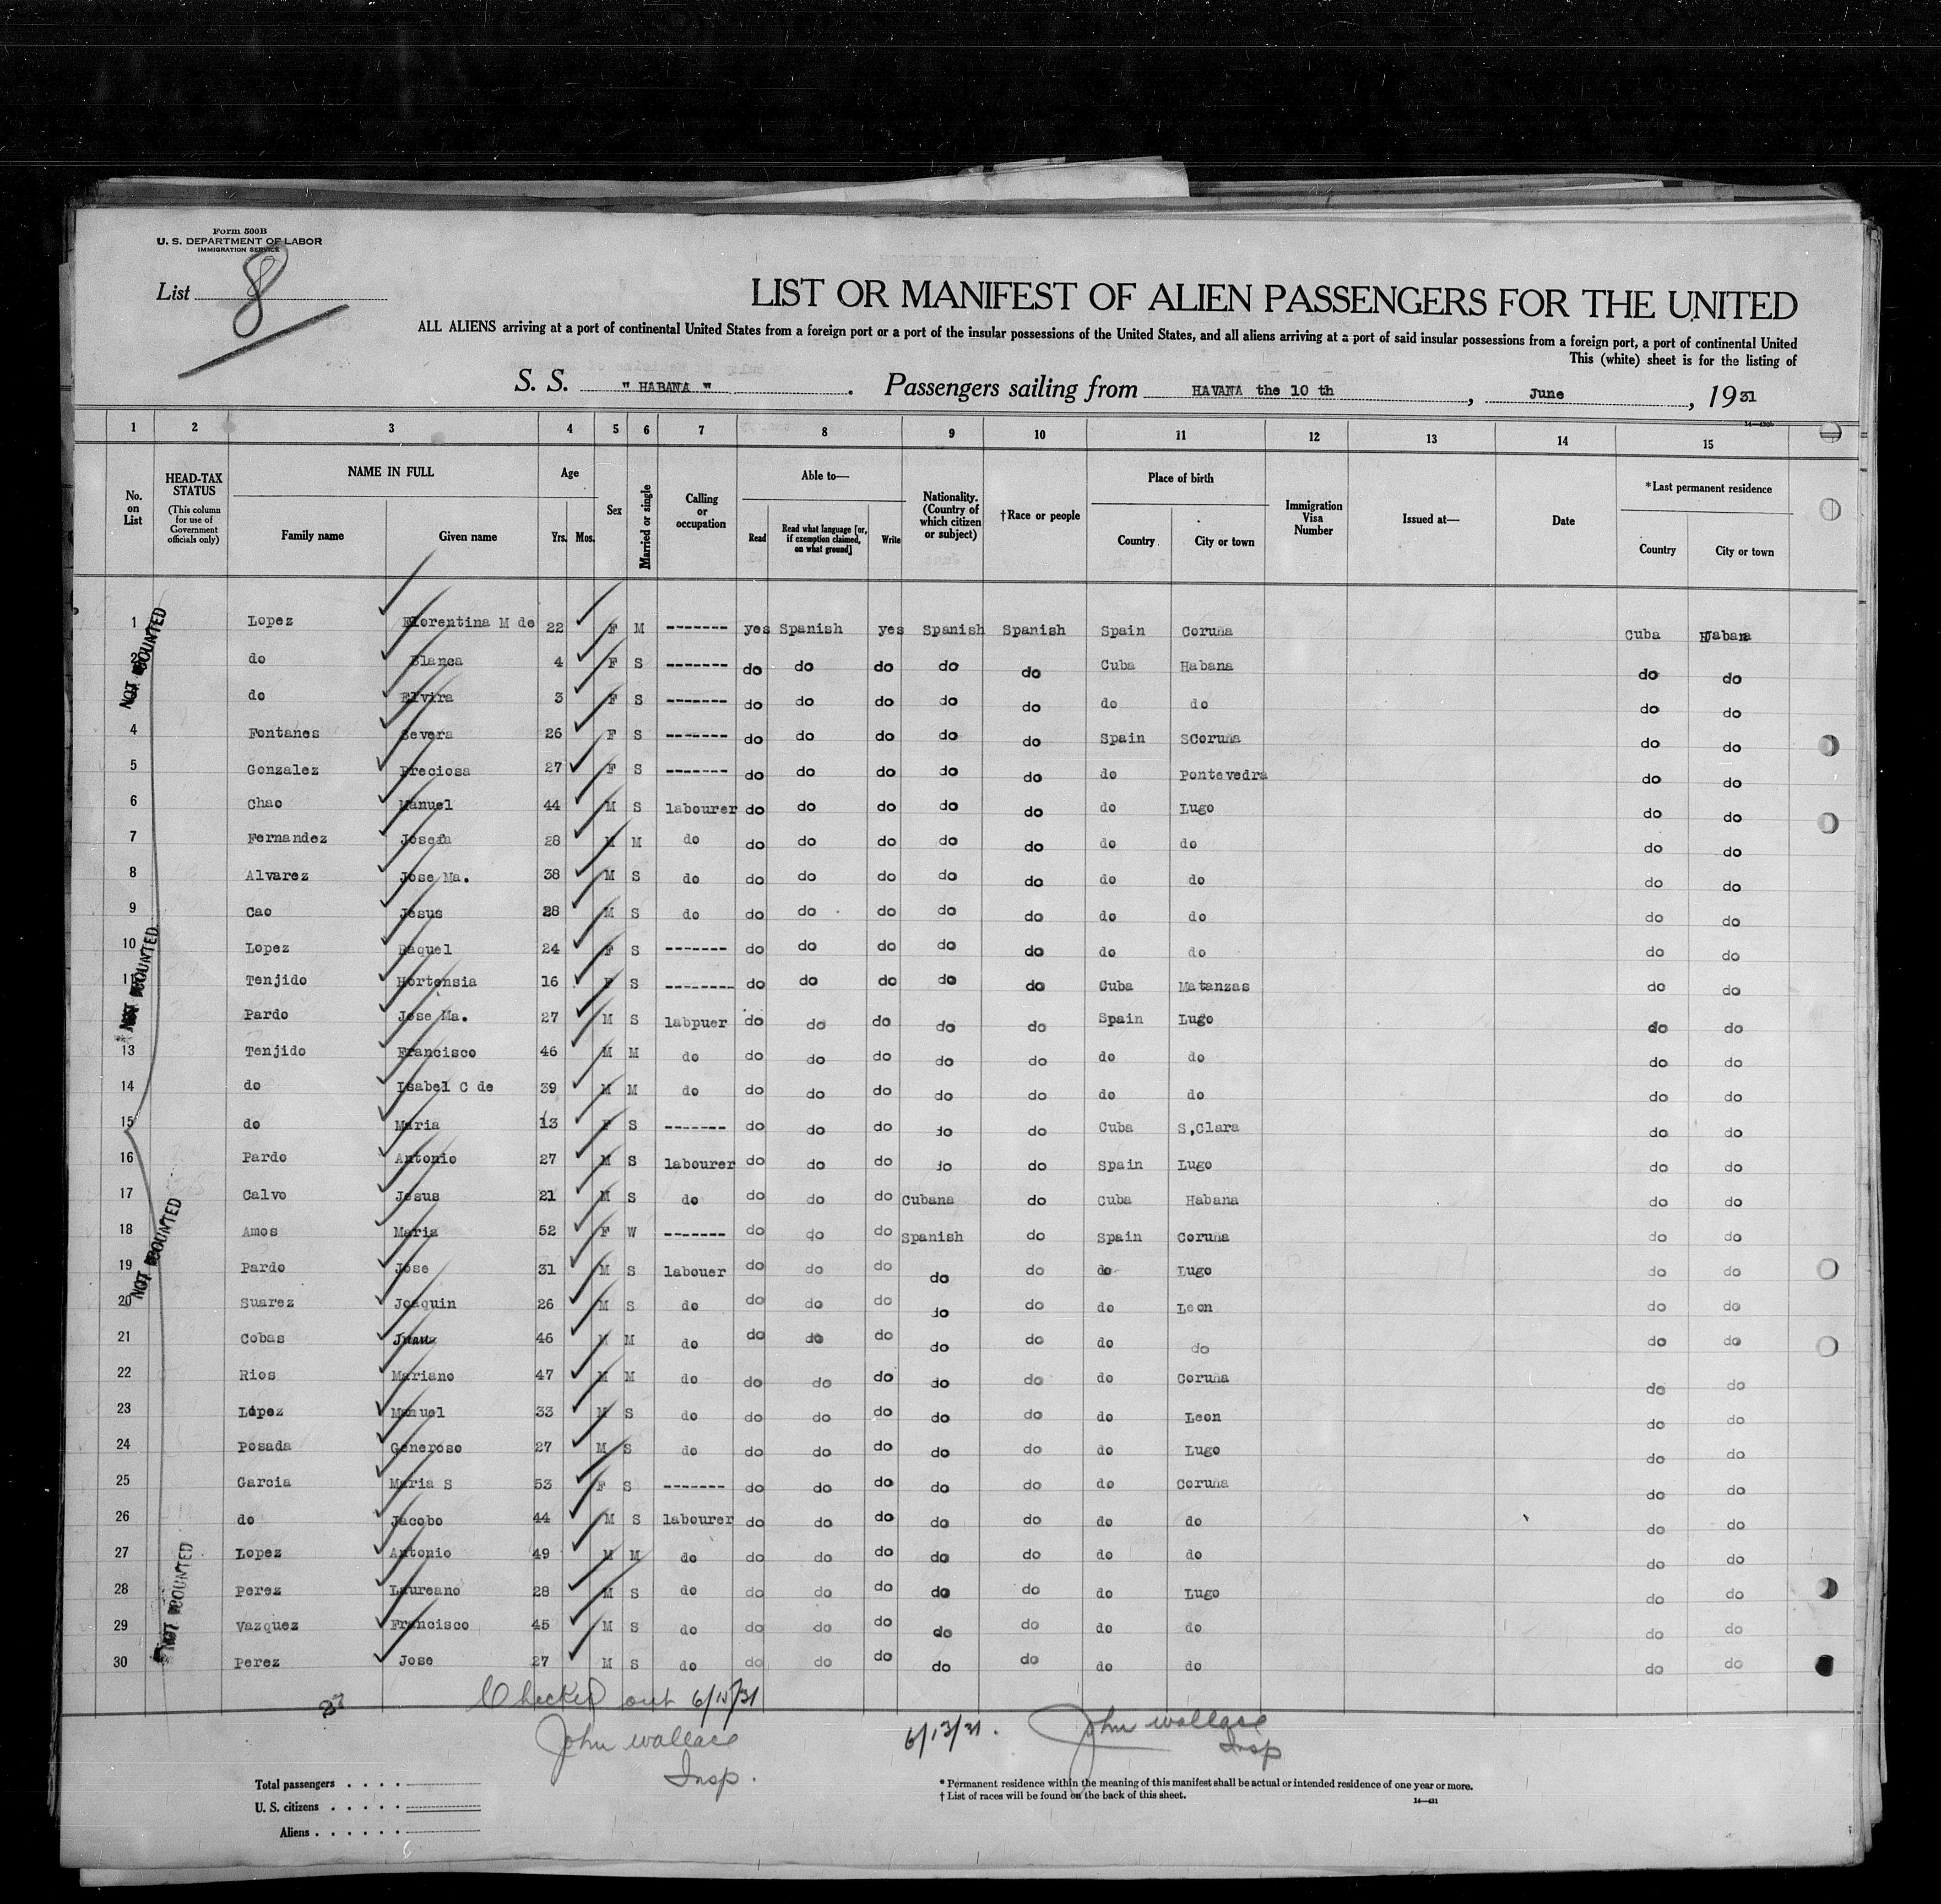 Form 500B
U. S. DEPARTMENT OF LABOR
IMMIGRATION SERVICE
List 8
LIST OR MANIFEST OF ALIEN PASSENGERS FOR THE UNITED
ALL ALIENS arriving at a port of continental United States from a foreign port or a port of the insular possessions of the United States, and all aliens arriving at a port of said insular possessions from a foreign port, a port of continental United
This (white) sheet is for the listing of
S. S. " HABANA " . Passengers sailing from HAVANA the 10 th , June , 1931
1 2 3 4 5 6 7 8 9 10 11 12 13 14 15
No. on List HEAD-TAX STATUS (This column for use of Government officials only) NAME IN FULL Family name Given name Age Yrs. Mos. Sex Married or single Calling or occupation Able to— Read Read what language [or, if exemption claimed, on what ground] Write Nationality. (Country of which citizen or subject) †Race or people Place of birth Country City or town Immigration Visa Number Issued at— Date *Last permanent residence Country City or town
1 Lopez Florentina M de 22 F M ------- yes Spanish yes Spanish Spanish Spain Coruña Cuba Habana
2 do Blanca 4 F S ------- do do do do do Cuba Habana do do
do Elvira 3 F S ------- do do do do do do do do do
4 Fontanes Severa 26 F S ------- do do do do do Spain SCoruña do do
5 Gonzalez Preciosa 27 F S ------- do do do do do do Pontevedra do do
6 Chao Manuel 44 M S labourer do do do do do do Lugo do do
7 Fernandez Josefa 28 M M do do do do do do do do do do
8 Alvarez Jose Ma. 38 M S do do do do do do do do do do
9 Cao Jesus 28 M S do do do do do do do do do do
10 Lopez Raquel 24 F S ------- do do do do do do do do do
11 Tenjido Hortensia 16 F S -------- do do do do do Cuba Matanzas do do
Pardo Jose Ma. 27 M S labpuer do do do do do Spain Lugo do do
13 Tenjido Francisco 46 M M do do do do do do do do do do
14 do Isabel C de 39 M M do do do do do do do do do do
15 do Maria 13 F S ------- do do do do do Cuba S,Clara do do
16 Pardo Antonio 27 M S labourer do do do do do Spain Lugo do do
17 Calvo Jesus 21 M S do do do do Cubana do Cuba Habana do do
18 Amos Maria 52 F W ------- do do do Spanish do Spain Coruña do do
19 Pardo Jose 31 M S labouer do do do do do do Lugo do do
20 Suarez Joaquin 26 M S do do do do do do do Leon do do
21 Cobas Juan 46 M M do do do do do do do do do do
22 Rios Mariano 47 M M do do do do do do do Coruña do do
23 Lopez Manuel 33 M S do do do do do do do Leon do do
24 Posada Generoso 27 M S do do do do do do do Lugo do do
25 Garcia Maria S 53 F S ------- do do do do do do Coruña do do
26 do Jacobo 44 M S labourer do do do do do do do do do
27 Lopez Antonio 49 M M do do do do do do do do do do
28 Perez Laureano 28 M S do do do do do do do Lugo do do
29 Vazquez Francisco 45 M S do do do do do do do do do do
30 Perez Jose 27 M S do do do do do do do do do do
NOT COUNTED
NOT COUNTED
NOT COUNTED
NOT COUNTED
Checked out
John Wallace
Insp.
6/13/31. John Wallace
Insp
Total passengers . . . .
U. S. citizens . . . . .
Aliens . . . . . .
* Permanent residence within the meaning of this manifest shall be actual or intended residence of one year or more.
† List of races will be found on the back of this sheet.